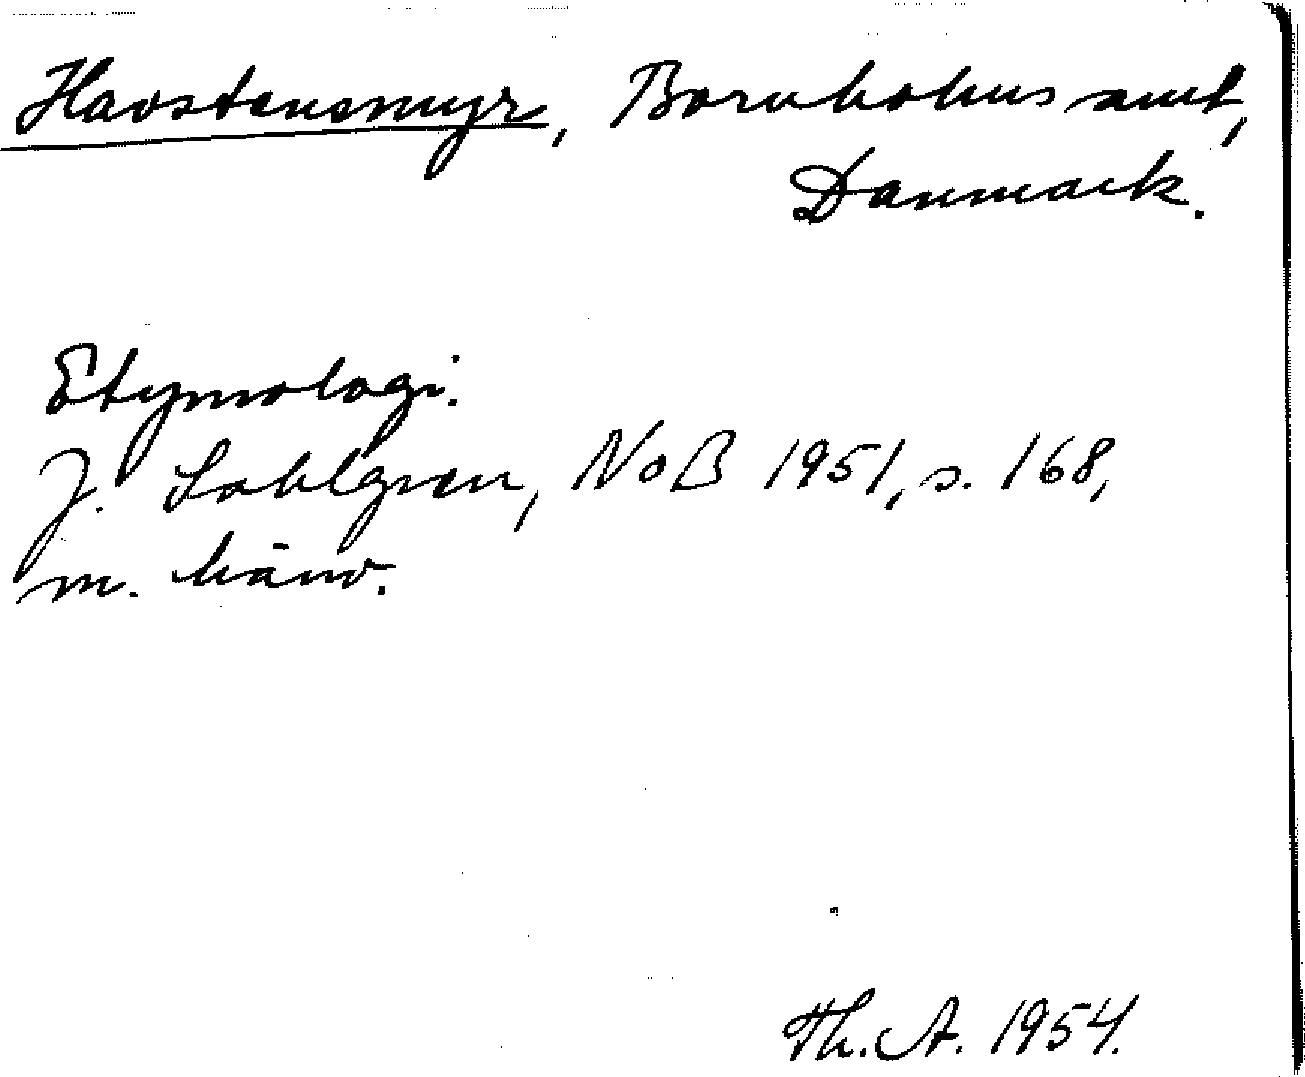 Havstensmyr, Bornholms amt,
Danmark.
Etymologi.
J. Sahlgren, NoB 1951, s. 168,
m. hänv.
Th. A. 1954.